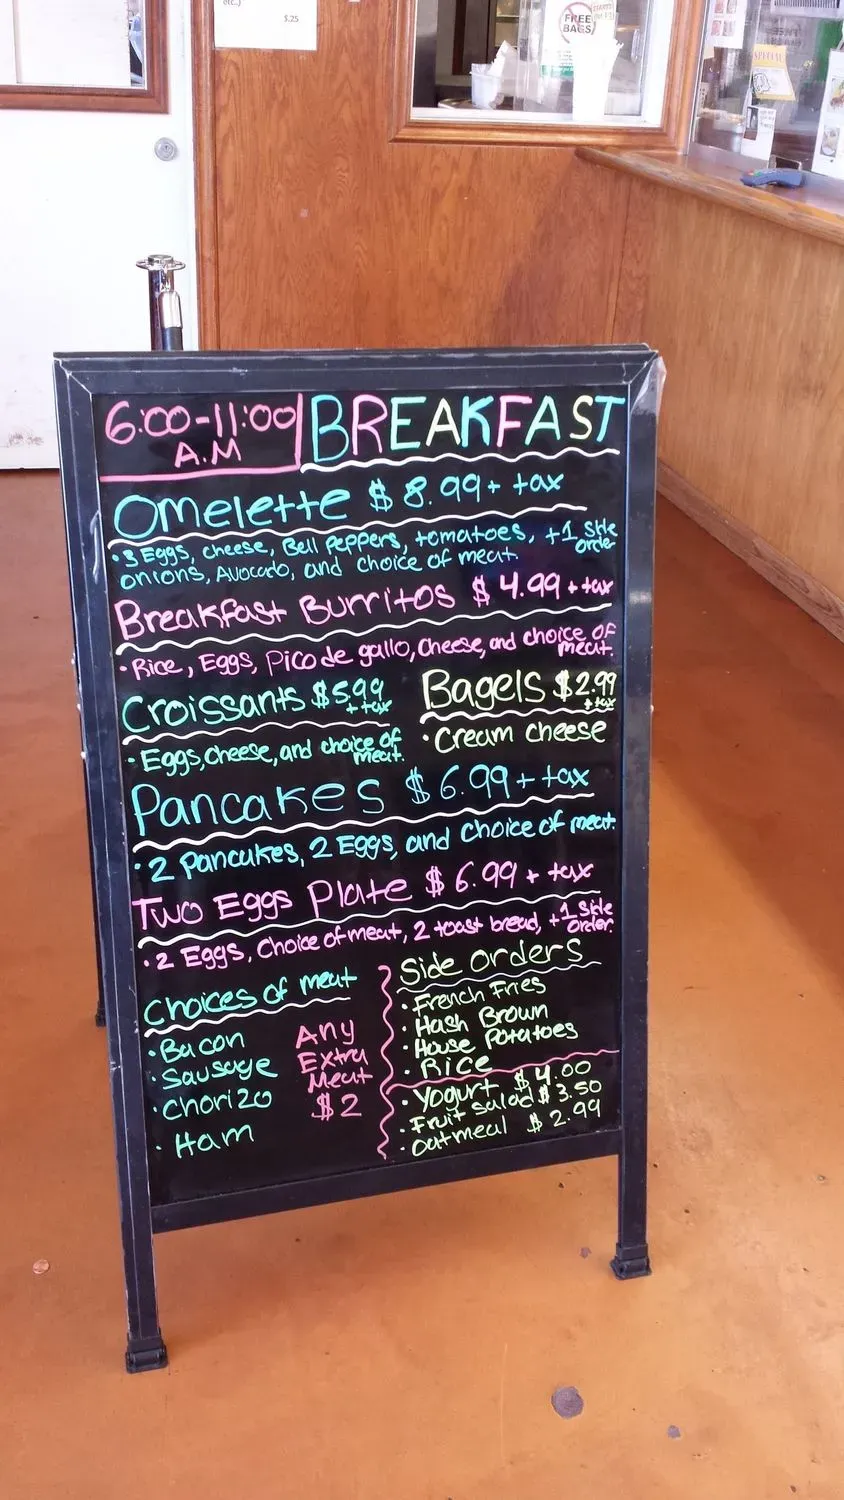 etc.)
$.25
FREE
BAGS
SPECIAL
6:00-11:00
A.M
BREAKFAST
Omelette $ 8.99 + tax
• 3 Eggs, cheese, Bell Peppers, tomatoes, +1 Side Order
onions, Avocado, and choice of meat.
Breakfast Burritos $ 4.99 + tax
• Rice, Eggs, Pico de gallo, Cheese, and choice of meat.
Croissants $5.99 + tax
• Eggs, Cheese, and choice of meat.
Bagels $2.99 + tax
• Cream cheese
Pancakes $6.99 + tax
• 2 Pancakes, 2 Eggs, and choice of meat.
Two Eggs Plate $ 6.99 + tax
• 2 Eggs, Choice of meat, 2 toast bread, +1 Side Order.
Choices of meat
• Bacon
• Sausage
• Chorizo
• Ham
Any
Extra
Meat
$2
Side orders
• French Fries
• Hash Brown
• House Potatoes
• Rice
• Yogurt $4.00
• Fruit Salad $ 3.50
• Oatmeal $ 2.99